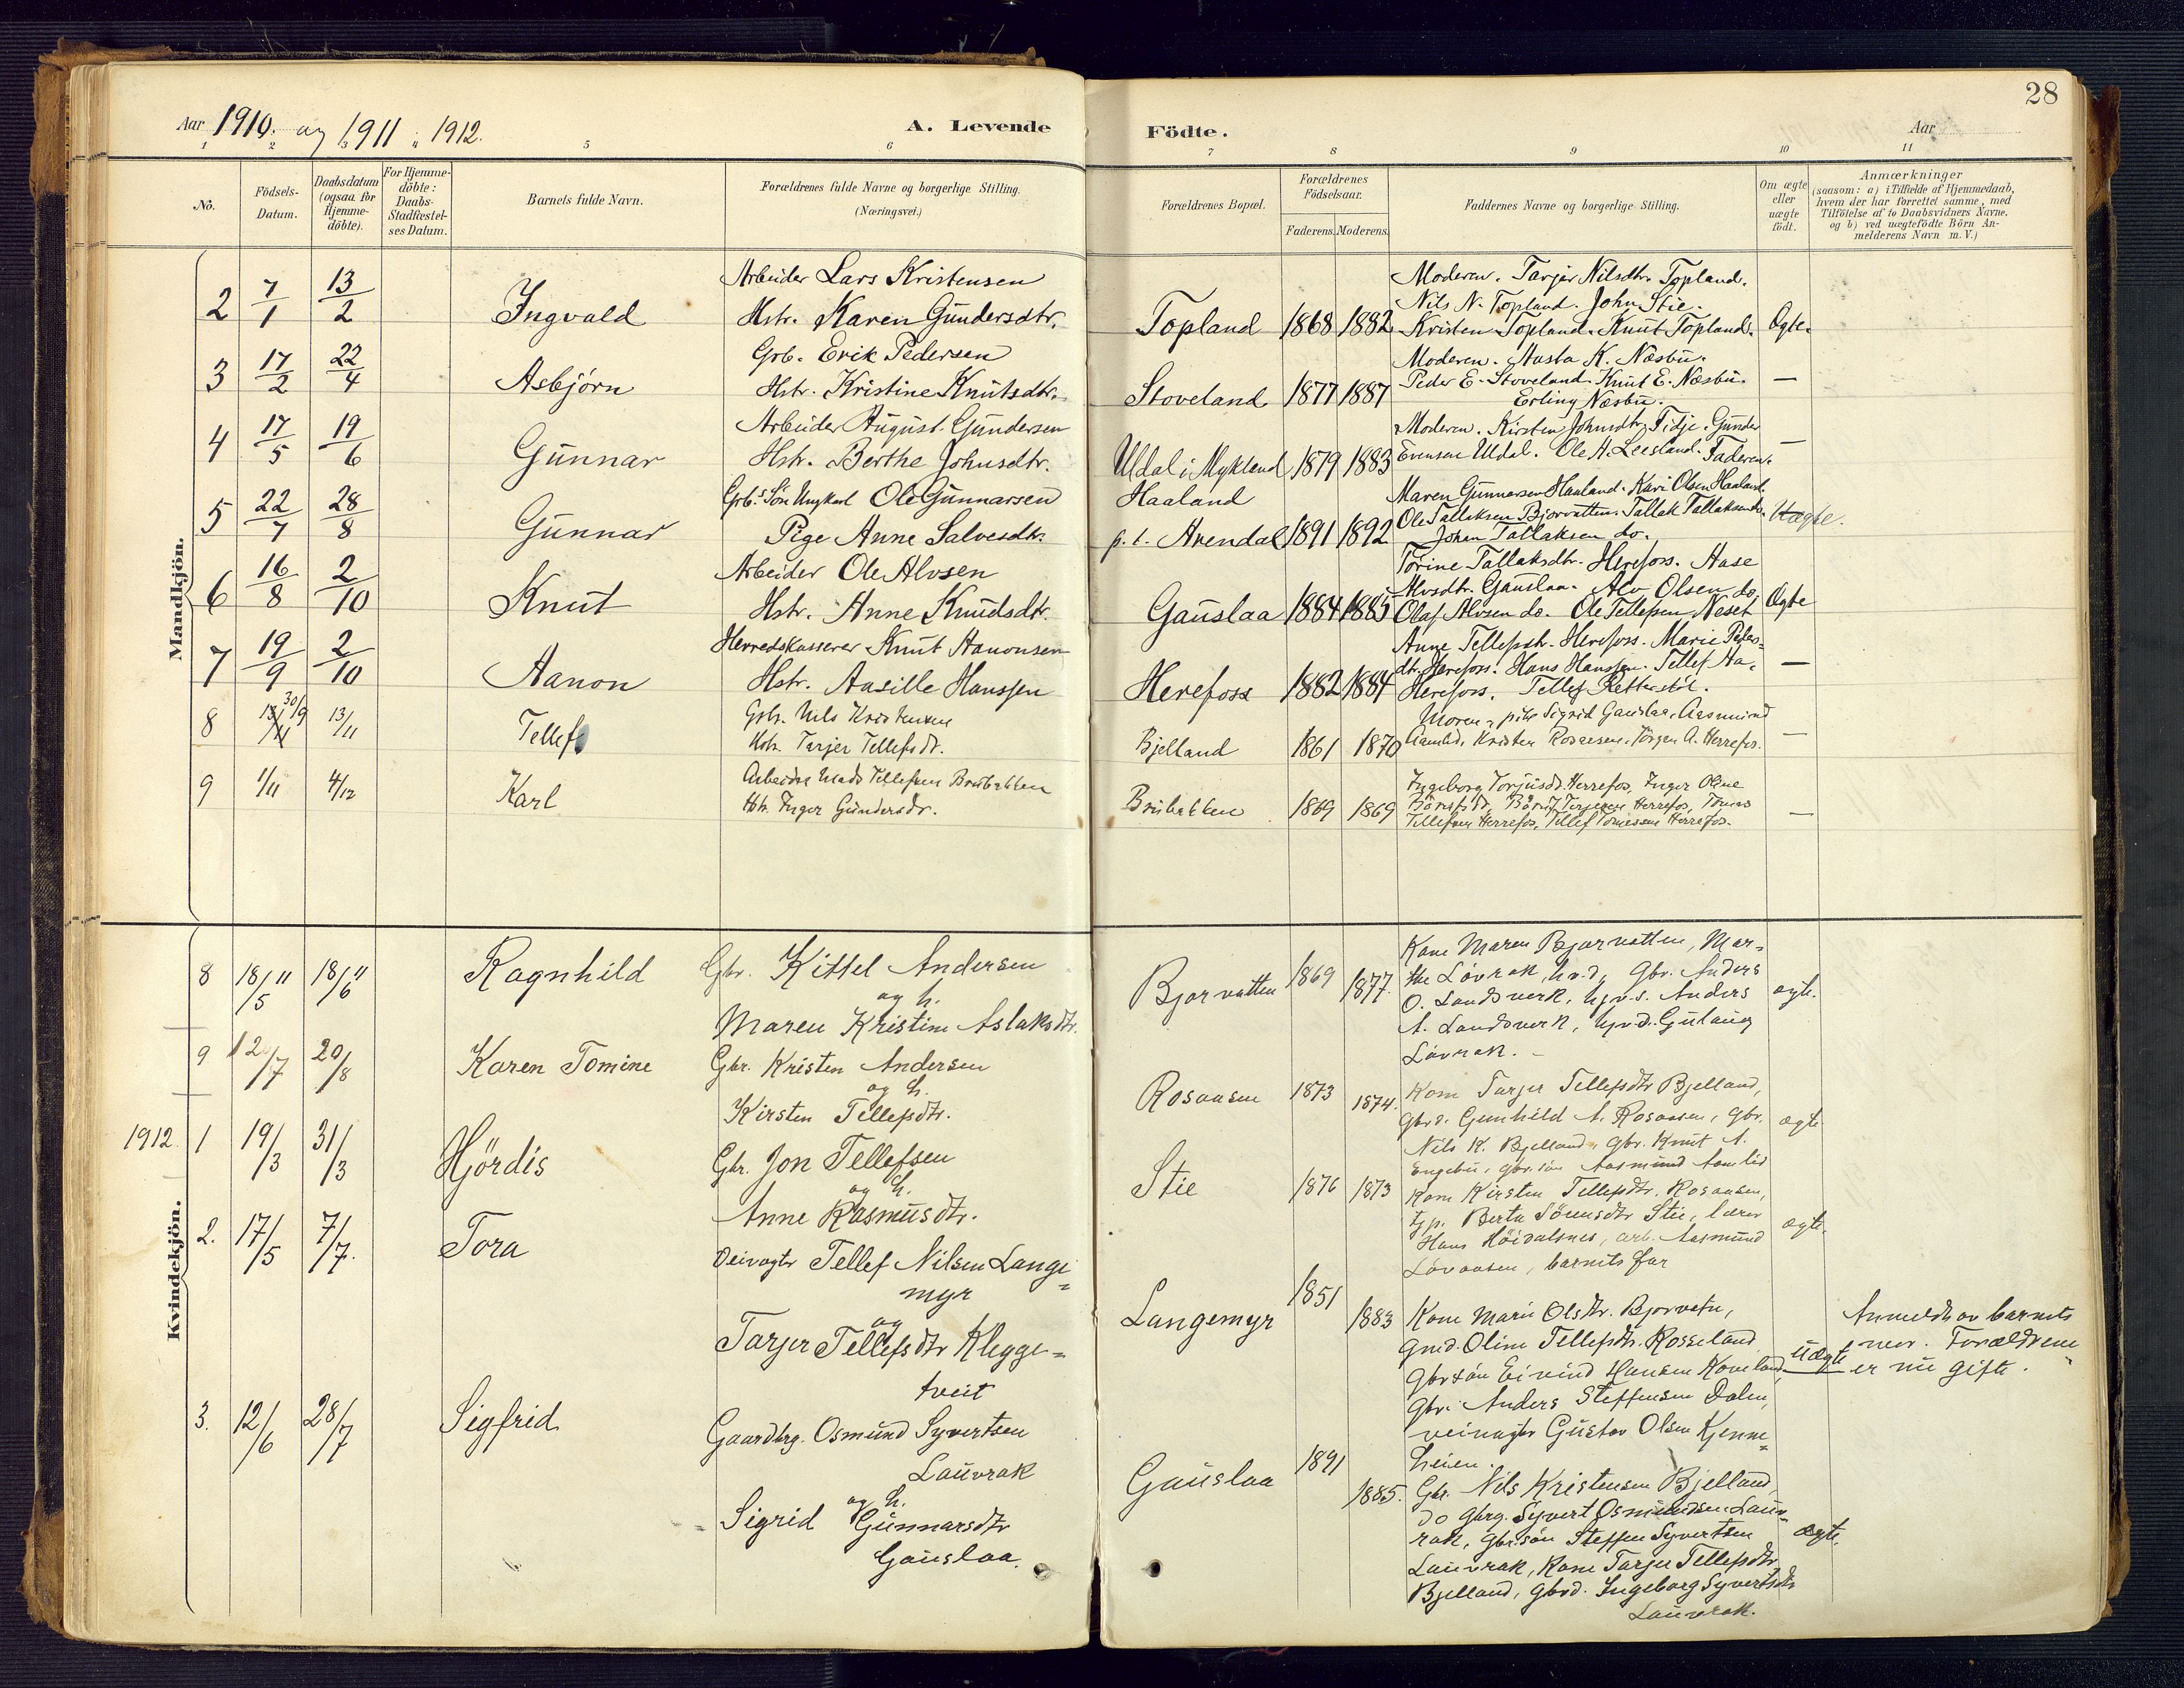 28
Aar 1910. og 1911 " 1912.
A. Levende Födte.
Aar
1 2 3 4 5 6 7 8 9 10 11
No.
Födsels-Datum.
Daabsdatum (ogsaa for Hjemme-döbte).
For Hjemme-döbte: Daabs-Stadfæstel-ses Datum.
Barnets fulde Navn.
Forældrenes fulde Navne og borgerlige Stilling.
(Næringsvei.)
Forældrenes Bopæl.
Forældrenes Födselsaar.
Faderens. Moderens.
Faddernes Navne og borgerlige Stilling.
Om ægte eller uægte födt.
Anmærkninger
(saasom: a) i Tilfælde af Hjemmedaab,
hvem der har forrettet samme, med
Tilföielse af to Daabsvidners Navne.
og b) ved uægtefödte Börn An-
melderens Navn m. V.)
Mandkjön.
2 7/1 13/2 Ingvald
Arbeider Lars Kristensen
Hstr. Karen Gundersdtr.
Topland 1868 1882
Moderen. Tarjer Nilsdtr. Topland.
Nils N. Topland. John Stie.
Kristen Topland. Knut Topland.
Ægte.
3 17/2 22/4 Asbjørn
Grb. Erik Pedersen
Hstr. Kristine Knutsdtr.
Stoveland 1877 1887
Moderen. Aasta K. Næsbu.
Peder E. Stoveland. Knut E. Næsbu.
Erling Næsbu.
—
4 17/5 19/6 Gunnar
Arbeider August Gundersen
Hstr. Berthe Johnsdtr.
Uldal i Mykland 1879 1883
Moderen. Kirsten Johnsdtr. Tidje. Gunder
Evensen Uldal. Ole A. Leesland. Faderen.
—
5 22/7 28/8 Gunnar
Grb.s Søn Ungkarl Ole Gunnarsen
Pige Anne Salvesdtr.
Haaland
p. t. Arendal 1891 1892
Maren Gunnarsen Haaland. Kari Olsen Haaland.
Ole Tallaksen Bjorvatten. Tallak Tallaksen do.
Johan Tallaksen do.
Uægte.
6 16/8 2/10 Knut
Arbeider Ole Alvsen
Hstr. Anne Knudsdtr.
Gauslaa 1884 1885
Torine Tallaksdtr. Herefoss. Aase
Alvsdtr. Gauslaa. Alv Olsen do.
Olaf Alvsen do. Ole Tellefsen Neset
Ægte
7 19/9 2/10 Aanon
Herredskasserer Knut Aanonsen
Hstr. Aasille Hanssen
Herefoss 1882 1884
Anne Tellefsdtr. Herefoss. Marie Peders-
dtr. Herefoss. Hans Hanssen. Tellef Aa.
Herefoss. Tellef Retterstöl.
—
8 30/9 13/11 Tellef
Grb. Nils Kristensen
Hstr. Tarjer Tellefsdr.
Bjelland 1861 1870
Moren, pike Sigrid Gauslaa, Aasmund
Aamlid, Kristen Rosaasen, Jörgen A. Herrefos.
—
9 1/11 4/12 Karl
Arbeider Mads Tellefsen Brubakken
Hstr. Inger Gundersdr.
Brubakken 1869 1869
Ingeborg Torjusdr. Herrefos, Inger Oline
Tellefsen Herrefos, Tellef Tomessen Herrefos.
—
Kvindekjön.
8 18/5 11 18/6 11 Ragnhild
Gbr. Kittel Andersen
og h.
Maren Kristine Aslaksdtr.
Bjorvatten 1869 1877.
Kone Maren Bjorvatten, Mar-
the Lövrak, hv.d, Gbr. Anders
O. Landsverk, hjv.s. Anders
A. Landsverk, hjv.d. Gulaug
Lövrak.
ægte.
9 12/7 20/8 Karen Tomine
Gbr. Kristen Andersen
og h.
Kirsten Tellefsdtr.
Rosaasen 1873 1874.
Kone Tarjer Tellefsdtr Bjelland,
Gbrd. Gunhild A. Rosaasen, gbr.
Nils K. Bjelland, gbr. Knut A.
Engebu, gbr. sön Aasmund Aamlid
ægte
1912 1 19/3 31/3 Hjördis
Gbr. Jon Tellefsen
og h.
Anne Rasmusdtr.
Stie 1876 1873
Kone Kirsten Tellefsdtr. Rosaasen,
tjp. Berta Sörensdtr Stie, lærer
Hans Höidalsnes, arb. Aasmund
Lövaasen, barnets far
ægte.
2. 17/5 7/7. Tora
Veivogter Tellef Nilsen Lange-
myr
og
Tarjer Tellefsdtr Klegge-
tveit
Langemyr 1851 1883
Kone Marie Olsdtr. Bjorvatn,
gmd. Oline Tellefsdtr. Rosseland
gbr sön Eivind Hansen Haveland
gbr. Anders Steffensen Dalen,
veivogter Gustav Olsen Kjenne-
heien.
Uægte
Anmeldt av barnets
mor. Forældrene
er nu gifte.
3. 12/6 28/7 Sigfrid
Gaardbrg. Osmund Syvertsen
Lauvrak
og h.
Sigrid Gunnarsdtr
Gauslaa.
Gauslaa 1891 1885.
Gbr. Nils Kristensen Bjelland,
do gbrg. Syvert Osmundsen Lauv-
rak, gbr. sön Steffen Syvertsen
Lauvrak, Kone Tarjer Tellefsdtr
Bjelland, gbrd. Ingeborg Syvertsdtr
Lauvrak.
ægte.